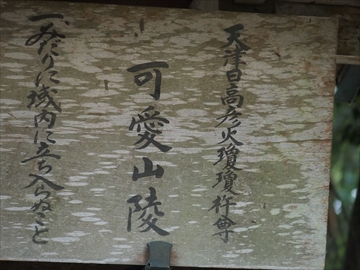 天津日高彦火瓊瓊杵尊
可愛山陵
一みだりに域内に立ち入らぬこと